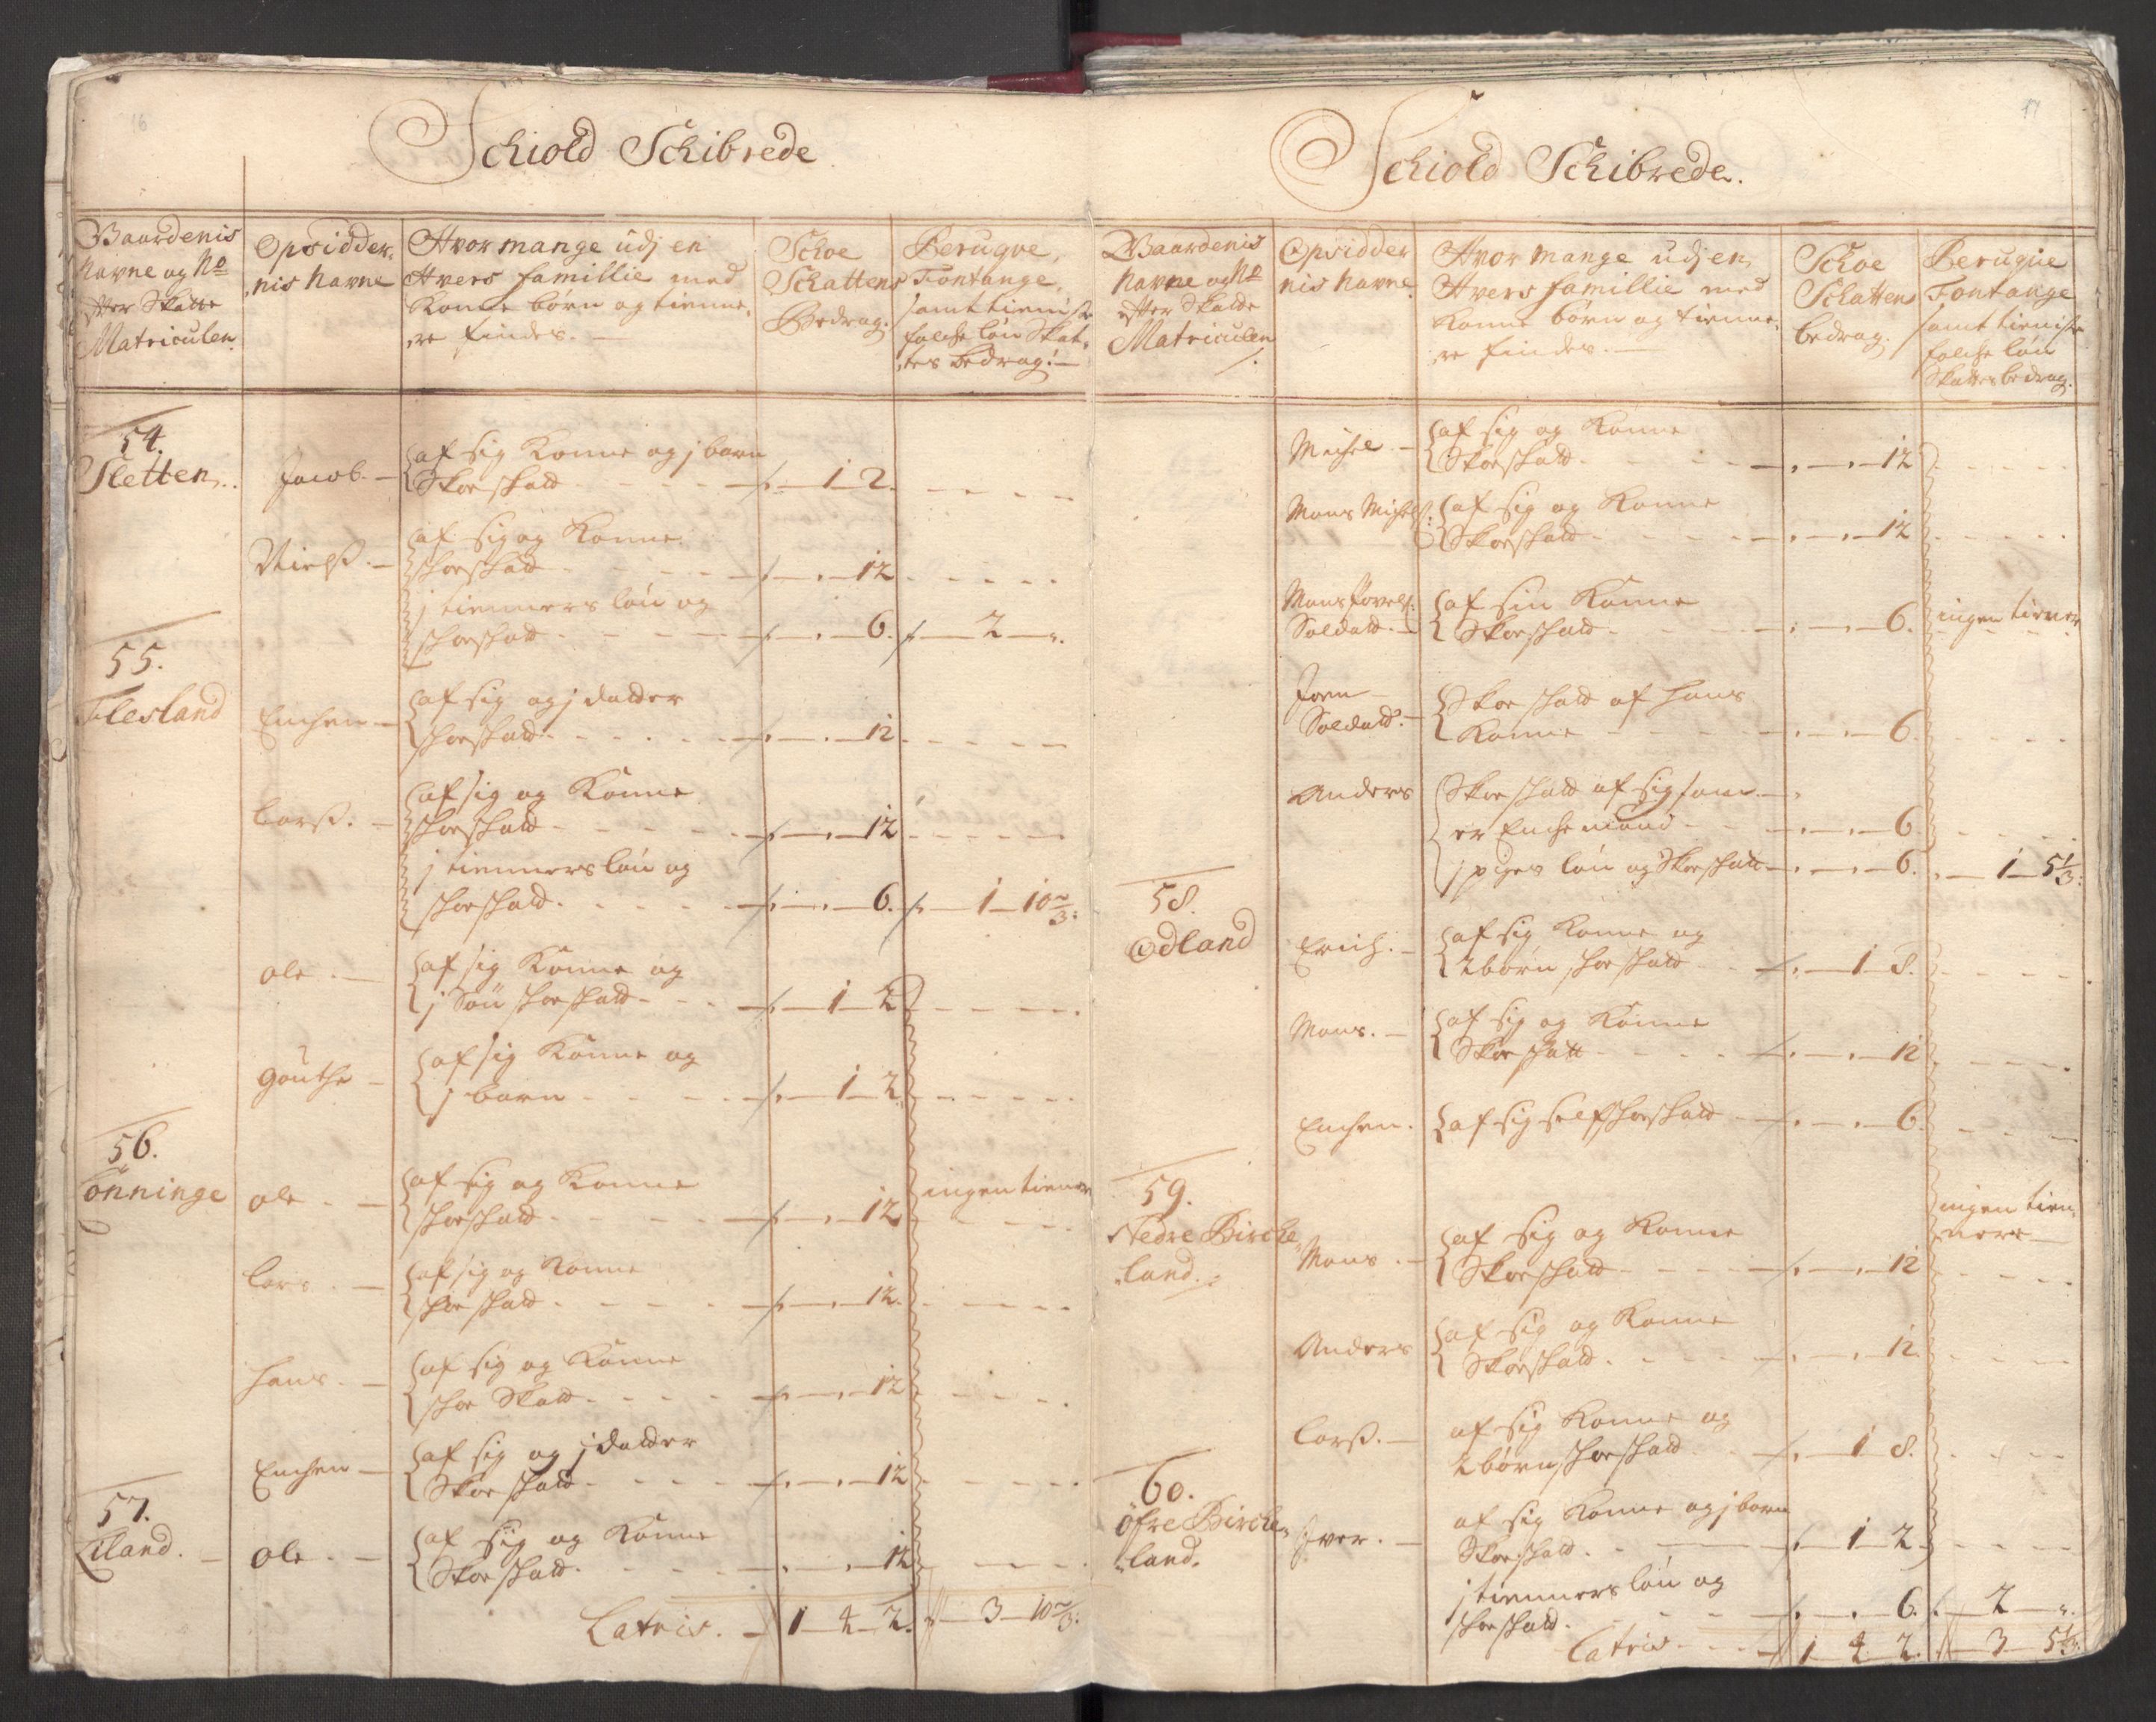 16
Schiold Schibrede
Gaardenis
Navne og No
efter Skatte
Matriculen
Opsidder,
nis Navne
Hvor mange udj en
Hvers famillie med
Konne børn og tienne,
re findes.
Schoe
Schattens
Bedrag.
Beruqve,
Fontange,
samt tieniste
folche løn Skat,
tes Bedrag:
54.
Sletten.
Jacob.
af sig Konne og j barn
Skoe skatt
1 2.
Nielß.
af sig og Konne
skoeskatt
12
j tienners løn og
skoeskatt
6.
2
55.
Flesland
Enchen
af sig og j datter
skoeskatt
12
Larß.
af sig og Konne
skoeskatt
12
j tienners løn og
skoeskatt.
6.
1 10 2/3:
ole.
af sig Konne og
j Søn skoeskatt
1 2
Gouthe
af sig Konne og
j barn
1 2.
56.
Tønninge
ole.
af sig og Konne
skoeskatt
12
ingen tiener
Lars.
af sig og Konne
skoe skatt
12.
Hans.
af sig og Konne
skoe Skatt
12
Enchen
af sig og j datter
Skoe skatt
12
57.
Liland.
ole.
af sig og Konne
Skoe skatt.
12
Lateris.
1 4 2.
3 10 2/3:
17
Schiold Schibrede.
Gaardenis
Navne og No
efter Skatte
Matriculen
Opsidder
nis Navne
Hvor mange udj en,
Hvers famillie med
Konne børn og tienne,
re findes.
Schoe
Schattens
bedrag.
Beruqve
Fontange
samt tieniste
folche løn
Skattes bedrag.
Michel
af sig og Konne
Skoeskatt.
12
Mons Michels:
af sig og Konne
Skoeskatt
12
Mons
Soldatt.
af sin Konne
Skoeskatt.
6.
ingen tiener
Joen
Soldatt.
Skoe skatt af hans
Konne
6.
Anders
Skoe skatt af sig som
er Enchemand
6
j piges løn og Skoeskatt
6.
1 5 1/3:
58.
Odland
Erich.
af sig Konne og
2 børn skoe skatt
1 8.
Mons.
af sig og Konne
Skoe skatt
12
Enchen.
af sig self skoeskatt
6.
59.
Nedre Birche,
land.
Mons.
af sig og Konne
Skoe skatt
12
ingen tien,
nere
Anders
af sig og Konne
Skoeskatt.
12.
Larß.
af sig Konne og
2 børn skoeskatt
1 8.
60.
Øfre Birche,
land.
Iver.
af sig Konne og j barn
Skoeskatt.
1 2.
j tienners løn og
skoeskatt.
6.
2
Lateris
1 4 2.
3 5 1/3: